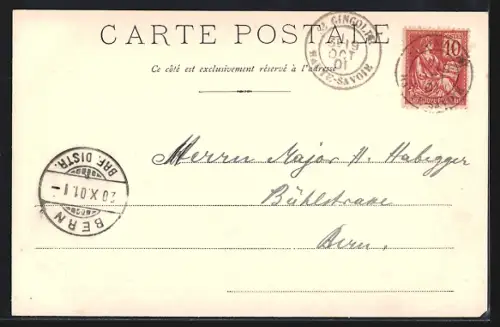 CARTE POSTALE
Ce côté est exclusivement réservé à l'adresse
St GINGOLPH
19
OCT
01
HTE-SAVOIE
10
BRF. DISTR.
20.X.01.I-
BERN
Herrn Major H. Habegger
Bühlstrasse
Bern.